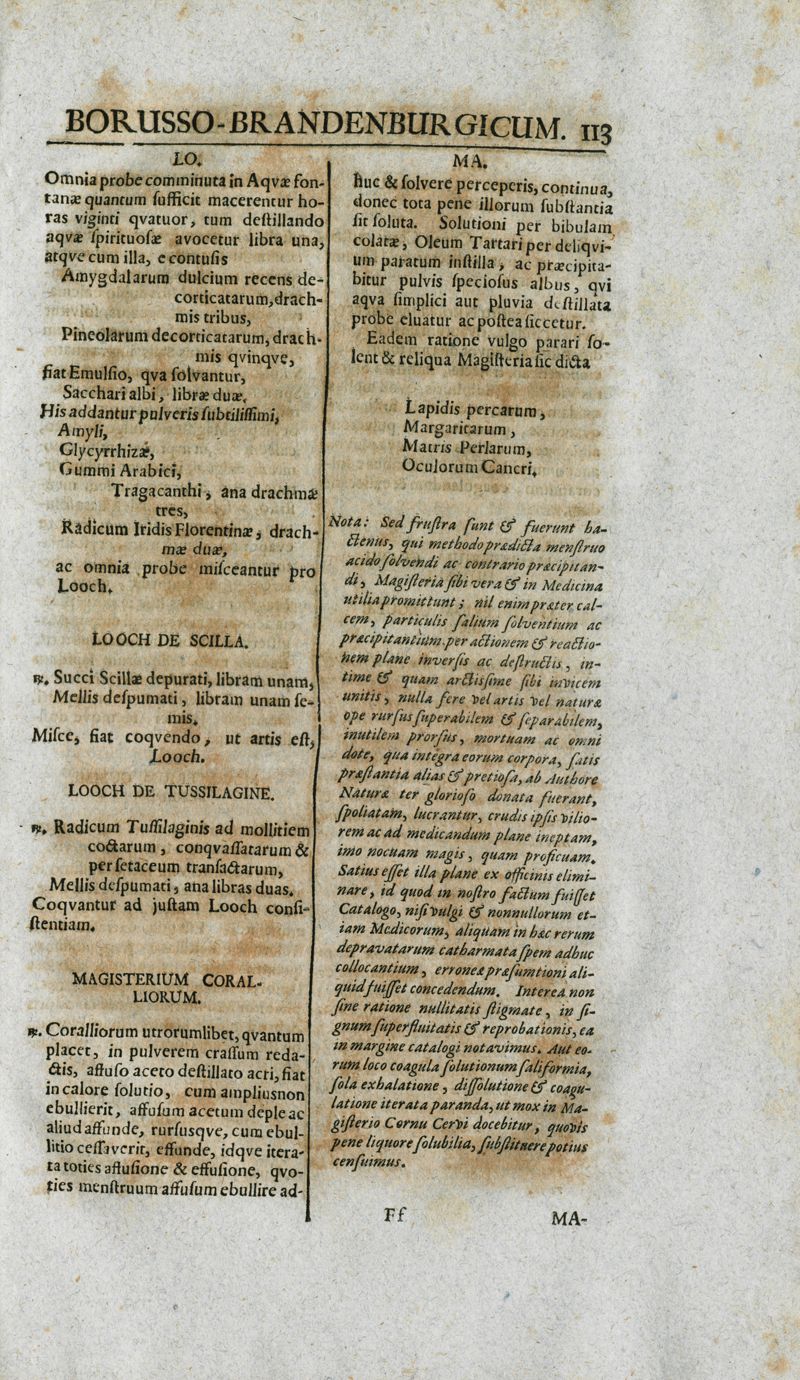 BORUSSO-BRANDENBURGICUM. 113
LO.
Omnia probe comminuta in Aqvæ fon-
tanæ quantum ſufficit macerentur ho-
ras viginti qvatuor, tum deſtillando
aqvæ ſpirituoſæ avocetur libra una,
atqve cum illa, e contuſis
Amygdalarum dulcium recens de-
corticatarum, drach-
mis tribus,
Pineolarum decorticatarum, drach-
mis qvinqve,
fiat Emulſio, qva ſolvantur,
Sacchari albi, libræ duæ,
His addantur pulveris ſubtiliſſimi,
Amyli,
Glycyrrhizæ,
Gummi Arabici,
Tragacanthi, ana drachmæ
tres,
Radicum Iridis Florentinæ, drach-
mæ duæ,
ac omnia probe miſceantur pro
Looch.
LOOCH DE SCILLA.
℞. Succi Scillæ depurati, libram unam,
Mellis deſpumati, libram unam ſe-
mis.
Miſce, fiat coqvendo, ut artis eſt,
Looch.
LOOCH DE TUSSILAGINE.
℞. Radicum Tuſſilaginis ad mollitiem
coctarum, conqvaſſatarum &
per ſetaceum tranſactarum,
Mellis deſpumati, ana libras duas.
Coqvantur ad juſtam Looch conſi-
ſtentiam.
MAGISTERIUM CORAL-
LIORUM.
℞. Coralliorum utrorumlibet, qvantum
placet, in pulverem craſſum reda-
ctis, affuſo aceto deſtillato acri, fiat
in calore ſolutio, cum ampliusnon
ebullierit, affuſum acetum deple ac
aliud affunde, rurſusqve, cum ebul-
litio ceſſaverit, effunde, idqve itera-
ta toties affuſione & effuſione, qvo-
ties menſtruum affuſum ebullire ad-
MA.
huc & ſolvere perceperis, continua,
donec tota pene illorum ſubſtantia
ſit ſoluta. Solutioni per bibulam
colatæ, Oleum Tartari per deliqvi-
um paratum inſtilla, ac præcipita-
bitur pulvis ſpecioſus albus, qvi
aqva ſimplici aut pluvia deſtillata
probe eluatur ac poſtea ſiccetur.
Eadem ratione vulgo parari ſo-
lent & reliqua Magiſteria ſic dicta
Lapidis percarum,
Margaritarum,
Matris Perlarum,
Oculorum Cancri.
Nota: Sed fruſtra ſunt & fuerunt ha-
ctenus, qui methodo prædicta menſtruo
acido ſolvendi ac contrario præcipitan-
di, Magiſteria ſibi vera & in Medicina
utilia promittunt; nil enim præter cal-
cem, particulis ſalium ſolventium ac
præcipitantium per actionem & reactio-
nem plane inverſis ac deſtructis, in-
time & quam arctisſime ſibi invicem
unitis, nulla fere vel artis vel naturæ
ope rurſus ſuperabilem & ſeparabilem,
inutilem prorſus, mortuam ac omni
dote, qua integra eorum corpora, ſatis
præſtantia alias & pretioſa, ab Authore
Naturæ ter glorioſo donata fuerant,
ſpoliatam, lucrantur, crudis ipſis vilio-
rem ac ad medicandum plane ineptam,
imo nocuam magis, quam proficuam.
Satius eſſet illa plane ex officinis elimi-
nare, id quod in noſtro factum fuiſſet
Catalogo, niſi vulgi & nonnullorum et-
iam Medicorum, aliquam in hac rerum
depravatarum catharmata ſpem adhuc
collocantium, erroneæ præſumtioni ali-
quid fuiſſet concedendum. Interea non
ſine ratione nullitatis ſtigmate, in ſi-
gnum ſuperfluitatis & reprobationis, ea
in margine catalogi notavimus. Aut eo-
rum loco coagula ſolutionum ſaliformia,
ſola exhalatione, diſſolutione & coagu-
latione iterata paranda, ut mox in Ma-
giſterio Cornu Cervi docebitur, quovis
pene liquore ſolubilia, ſubſtituere potius
cenſuimus.
Ff
MA-